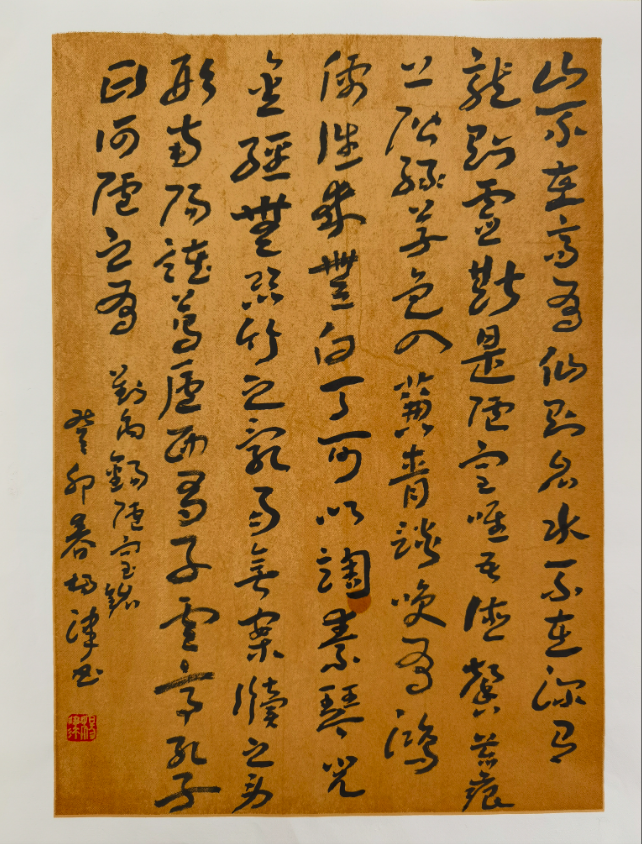 山不在高有仙則名水不在深有
龍則靈斯是陋室唯吾德馨苔痕
上階綠草色入簾青談笑有鴻
儒往來無白丁可以調素琴閱
金經無絲竹之亂耳無案牘之勞
形南陽諸葛廬西蜀子雲亭孔子
曰何陋之有
劉禹錫陋室銘
癸卯春楊津書